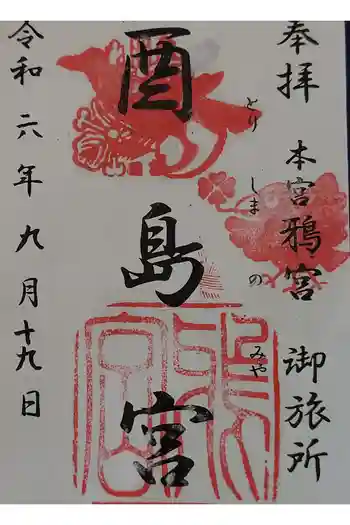 奉拝 本宮鴉宮 御旅所
酉島宮
とり しま の みや
令和六年九月十九日